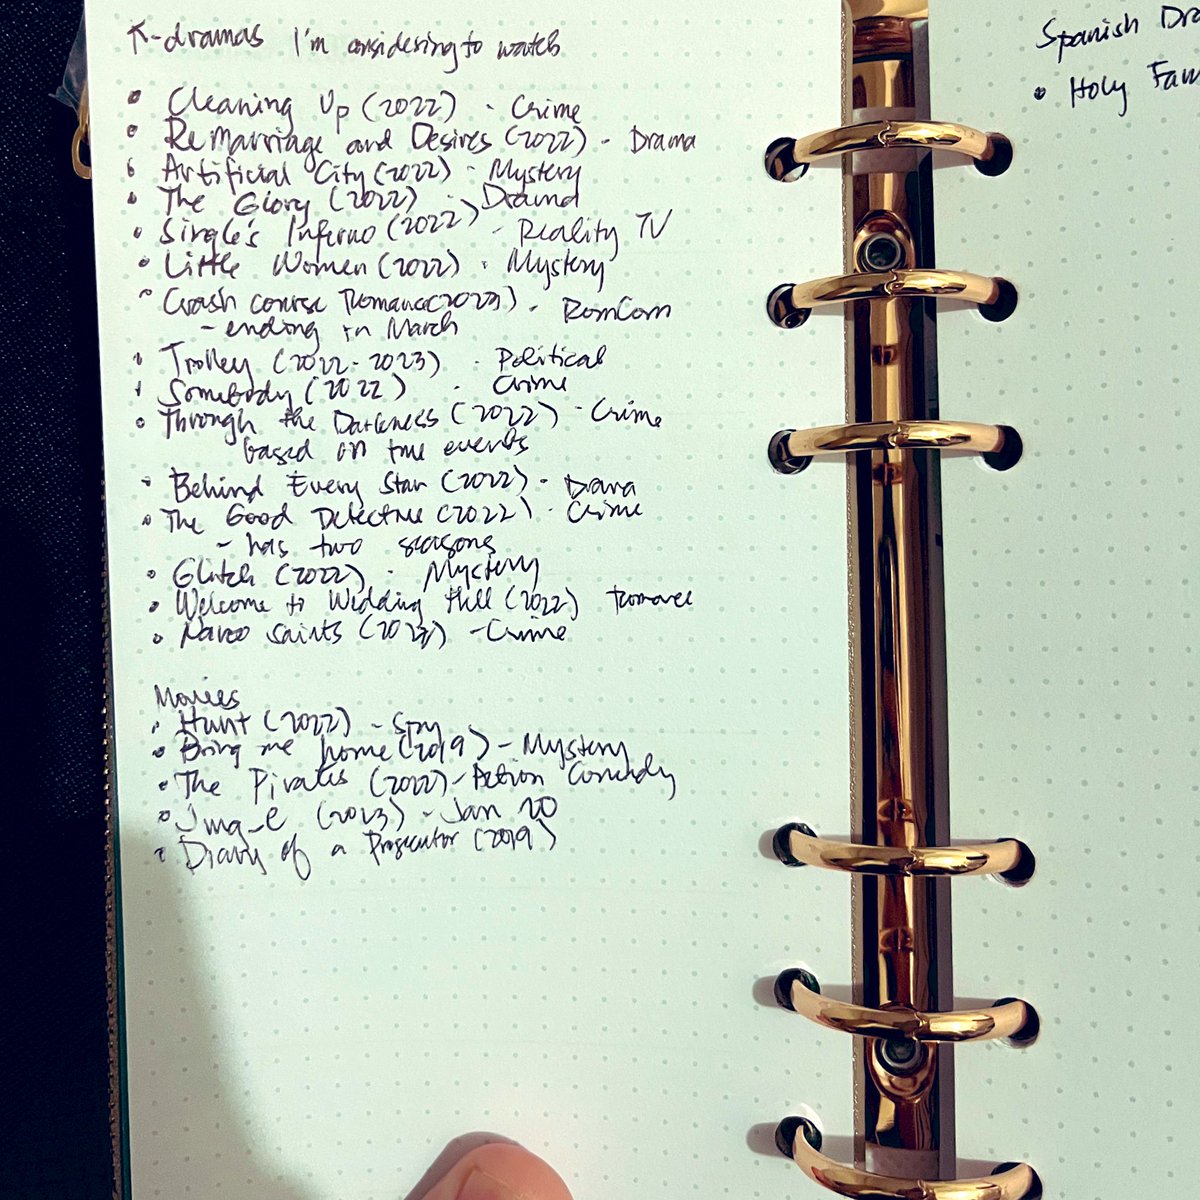 K-dramas I'm considering to watch
• Cleaning Up (2022) - Crime
• Remarriage and Desires (2022) - Drama
• Artificial City (2022) - Mystery
• The Glory (2022) - Drama
• Single's Inferno (2022) - Reality TV
• Little Women (2022) - Mystery
~ Crash course Romance (2023) - RomCom
- ending in March
• Trolley (2022-2023) - Political
• Somebody (2022) - Crime
• Through the Darkness (2022) - Crime
based on true events
• Behind Every Star (2022) - Drama
• The Good Detective (2022) - Crime
- has two seasons
• Glitch (2022) - Mystery
• Welcome to Wedding Hill (2022) Romance
• Narco saints (2022) - Crime
Movies
• Hunt (2022) - Spy
• Bring me home (2019) - Mystery
• The Pirates (2022) - Action Comedy
• Jung_e (2023) - Jan 20
• Diary of a Prosecutor (2019)
Spanish Dra
• Holy Fam